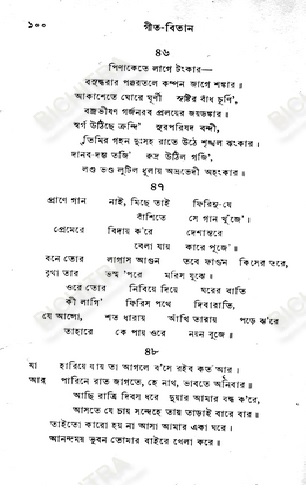 ১০০ গীত-বিতান
৪৬
পিণাকেতে লাগে টংকার—
বসুন্ধরার পঞ্জরতলে কম্পন জাগে শঙ্কার ॥
আকাশেতে ঘোরে ঘূর্ণী সৃষ্টির বাঁধ চূর্ণি',
বজ্রভীষণ গর্জনরব প্রলয়ের জয়ডঙ্কার ॥
স্বর্গ উঠিছে ক্রন্দি' সুরপরিষদ বন্দী,
তিমির গহন দুঃসহ রাতে উঠে শৃঙ্খল ঝংকার।
দানব-দম্ভ তর্জি' রুদ্র উঠিল গর্জি',
লণ্ড ভণ্ড লুটিল ধুলায় অভ্রভেদী অহংকার ॥
৪৭
প্রাণে গান নাই, মিছে তাই ফিরিনু-যে
বাঁশিতে সে গান খুঁজে'।
প্রেমেরে বিদায় ক'রে দেশান্তরে
বেলা যায় কারে পূজে' ॥
বনে তোর লাগাস আগুন তবে ফাগুন কিসের তরে,
বৃথা তোর ভস্ম 'পরে মরিস যুঝে ॥
ওরে তোর নিবিয়ে দিয়ে ঘরের বাতি
কী লাগি' ফিরিস পথে দিবারাতি,
যে আলো, শত ধারায় আঁখি তারায় পড়ে ঝ'রে
তাহারে কে পায় ওরে নয়ন বুজে ॥
৪৮
যা হারিয়ে যায় তা আগলে ব'সে রইব কত আর।
আর পারিনে রাত জাগতে, হে নাথ, ভাবতে অনিবার ॥
আছি রাত্রি দিবস ধরে দুয়ার আমার বন্ধ ক'রে,
আসতে যে চায় সন্দেহে তায় তাড়াই বারে বার ॥
তাইতো কারো হয় না আসা আমার একা ঘরে।
আনন্দময় ভুবন তোমার বাইরে খেলা করে ॥